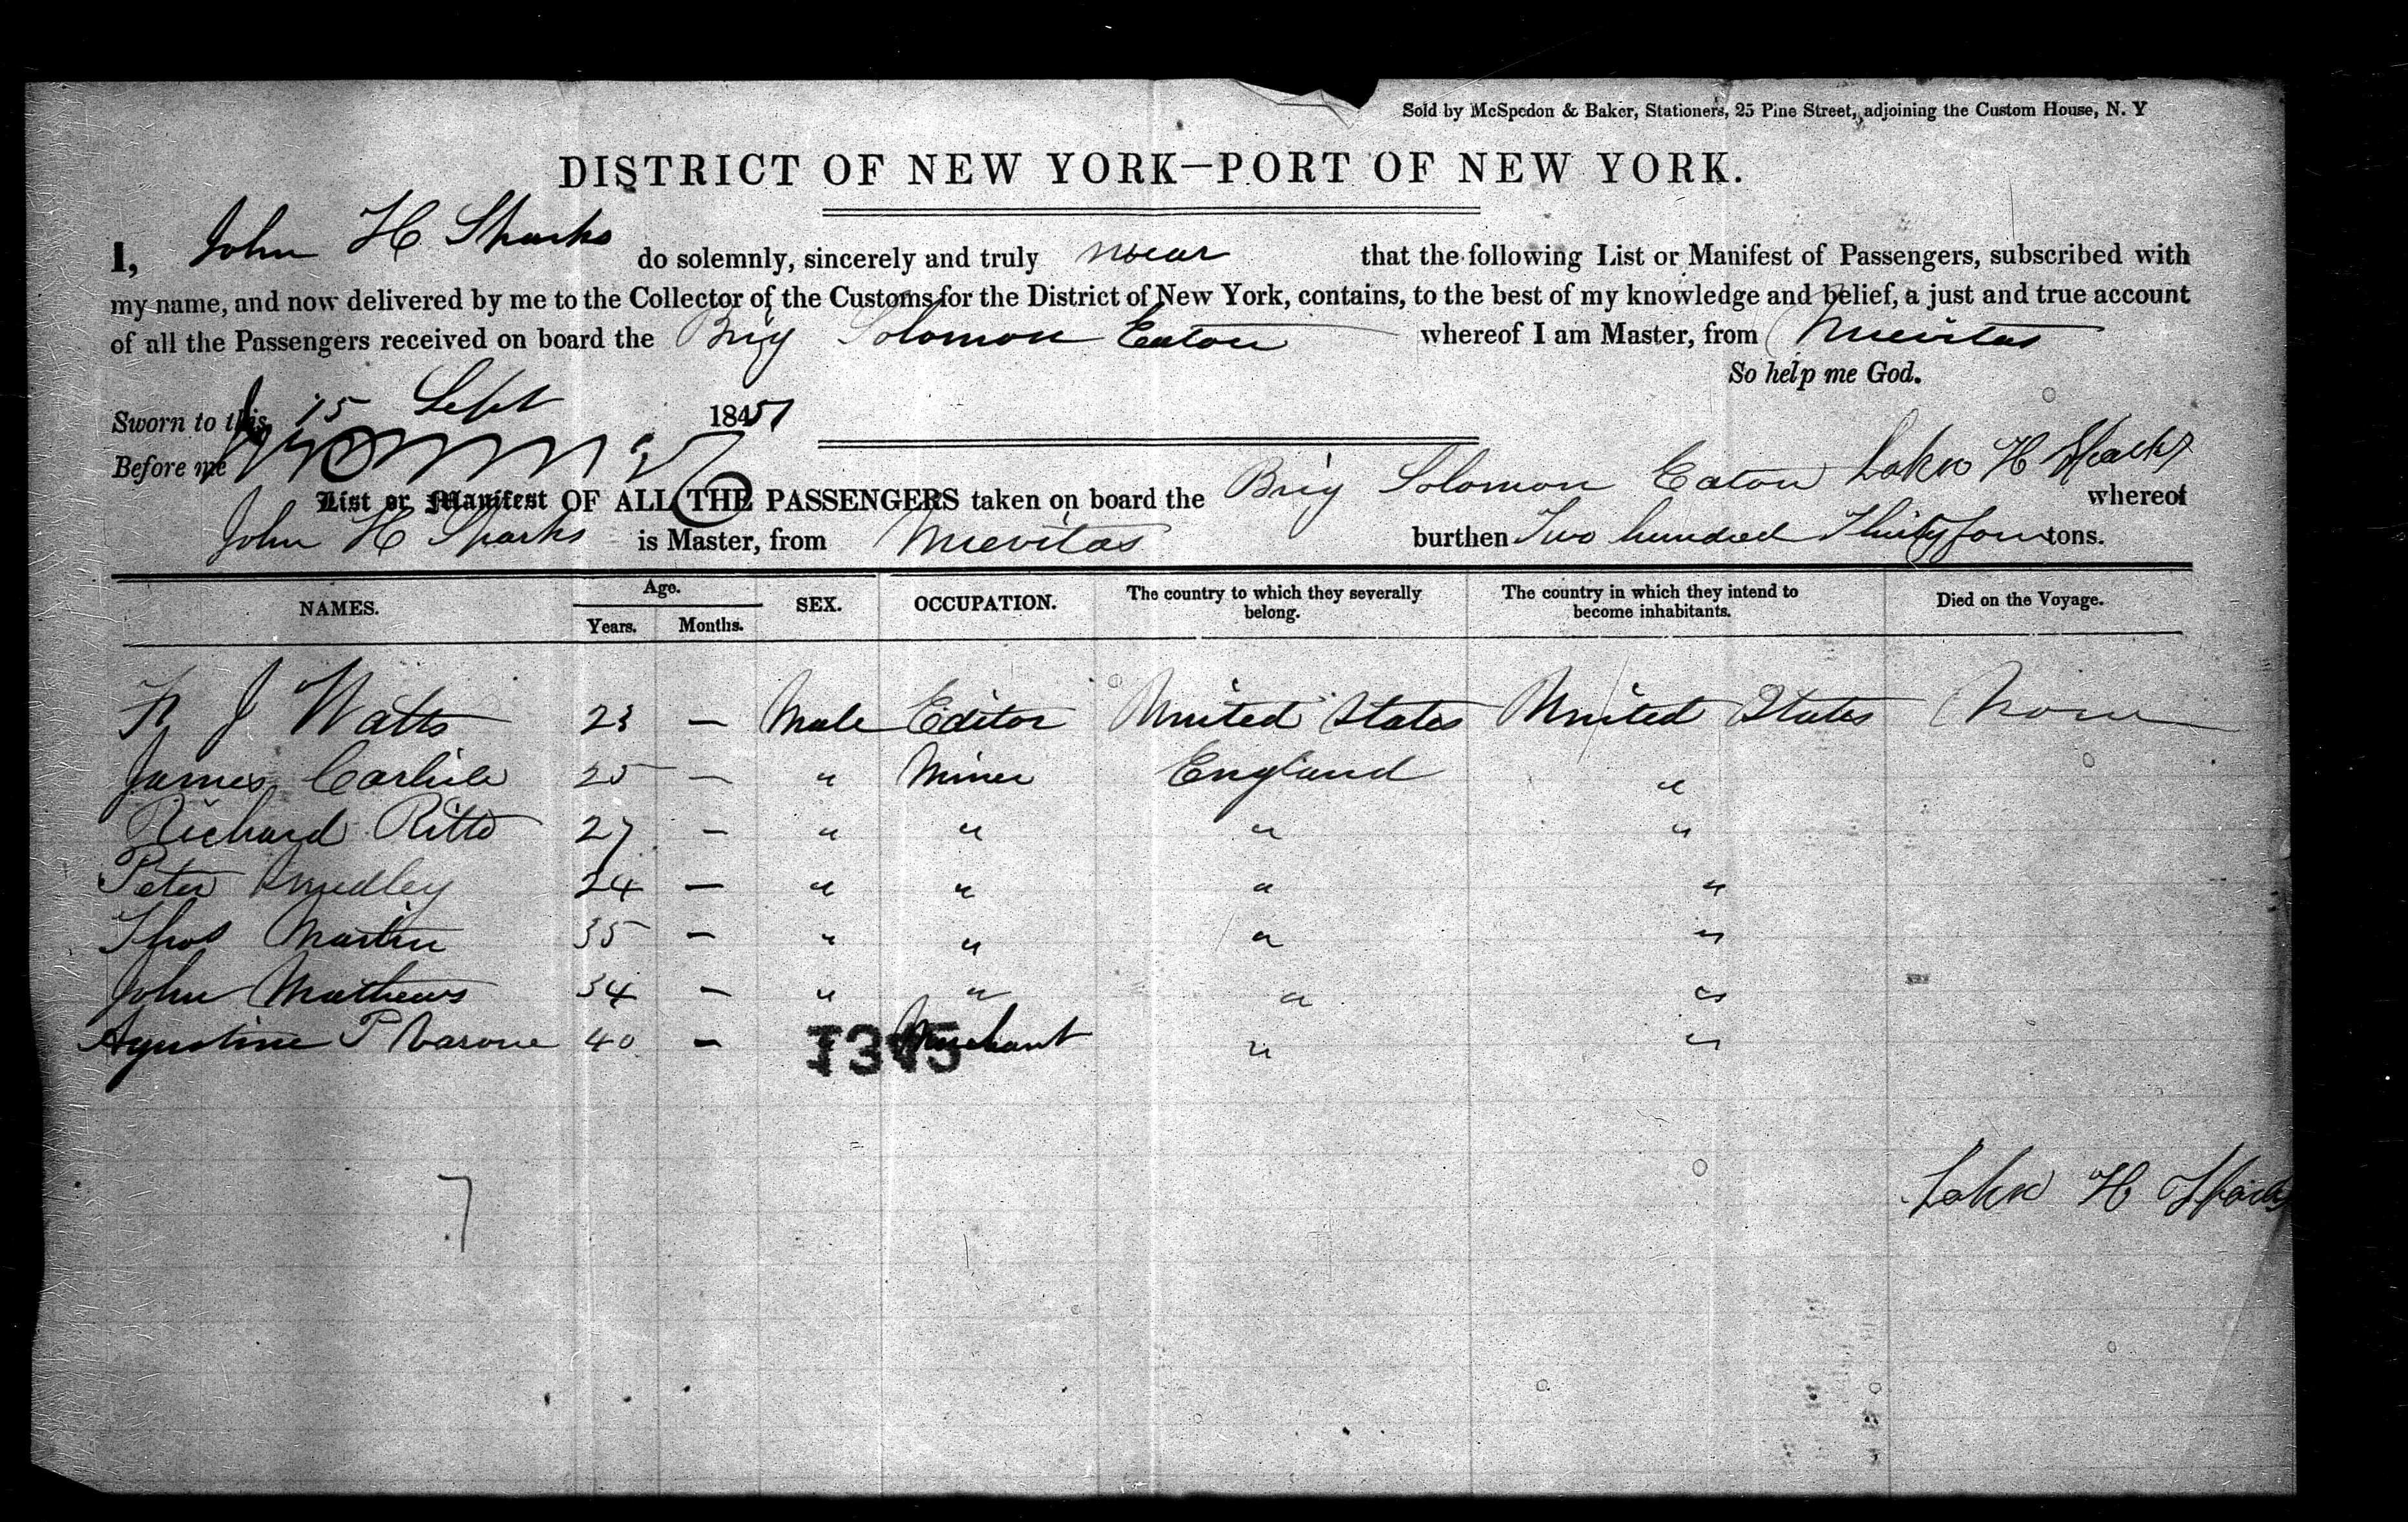 Sold by McSpedon & Baker, Stationers, 25 Pine Street, adjoining the Custom House, N. Y
DISTRICT OF NEW YORK—PORT OF NEW YORK.
I, John H Sparks do solemnly, sincerely and truly swear that the following List or Manifest of Passengers, subscribed with
my name, and now delivered by me to the Collector of the Customs for the District of New York, contains, to the best of my knowledge and belief, a just and true account
of all the Passengers received on board the Brig Solomon Eaton whereof I am Master, from Nuevitas
So help me God.
Sworn to this 15 Sept 1851
Before me
John H Sparks
List or Manifest OF ALL THE PASSENGERS taken on board the Brig Solomon Eaton whereof
John H Sparks is Master, from Nuevitas burthen Two hundred Thirty four tons.
NAMES. Age. SEX. OCCUPATION. The country to which they severally belong. The country in which they intend to become inhabitants. Died on the Voyage.
Years. Months.
J Watts 23 — Male Editor United States United States None
James Carlile 25 — " Miner England "
Richard Ritto 27 — " " " "
Peter Smedley 24 — " " " "
Thos Martin 35 — " " " "
John Mathews 34 — " " " "
Agustine P Varone 40 — " Merchant " "
1345
7
John H Sparks